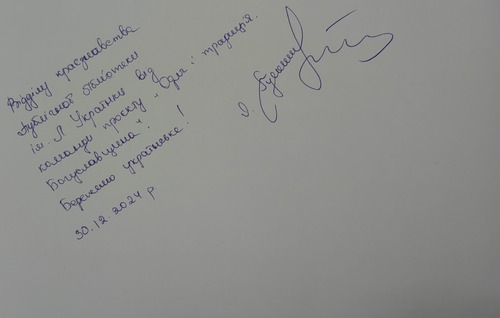 Відділу краєзнавства
Публічної бібліотеки
ім. Л. Українки від
команди проєкту "Одяг і традиція.
Богуславщина".
Бережемо українське!
30.12.2024 р